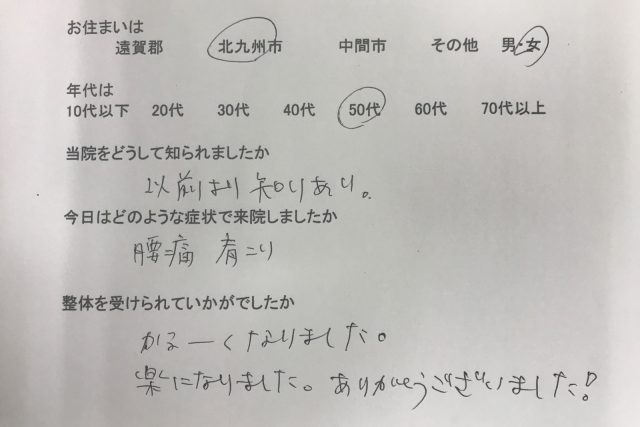 お住まいは
遠賀郡 北九州市 中間市 その他 男・女
年代は
10代以下 20代 30代 40代 50代 60代 70代以上
当院をどうして知られましたか
以前より知りあり。
今日はどのような症状で来院しましたか
腰痛 肩こり
整体を受けられていかがでしたか
かるーくなりました。
楽になりました。ありがとうございました!